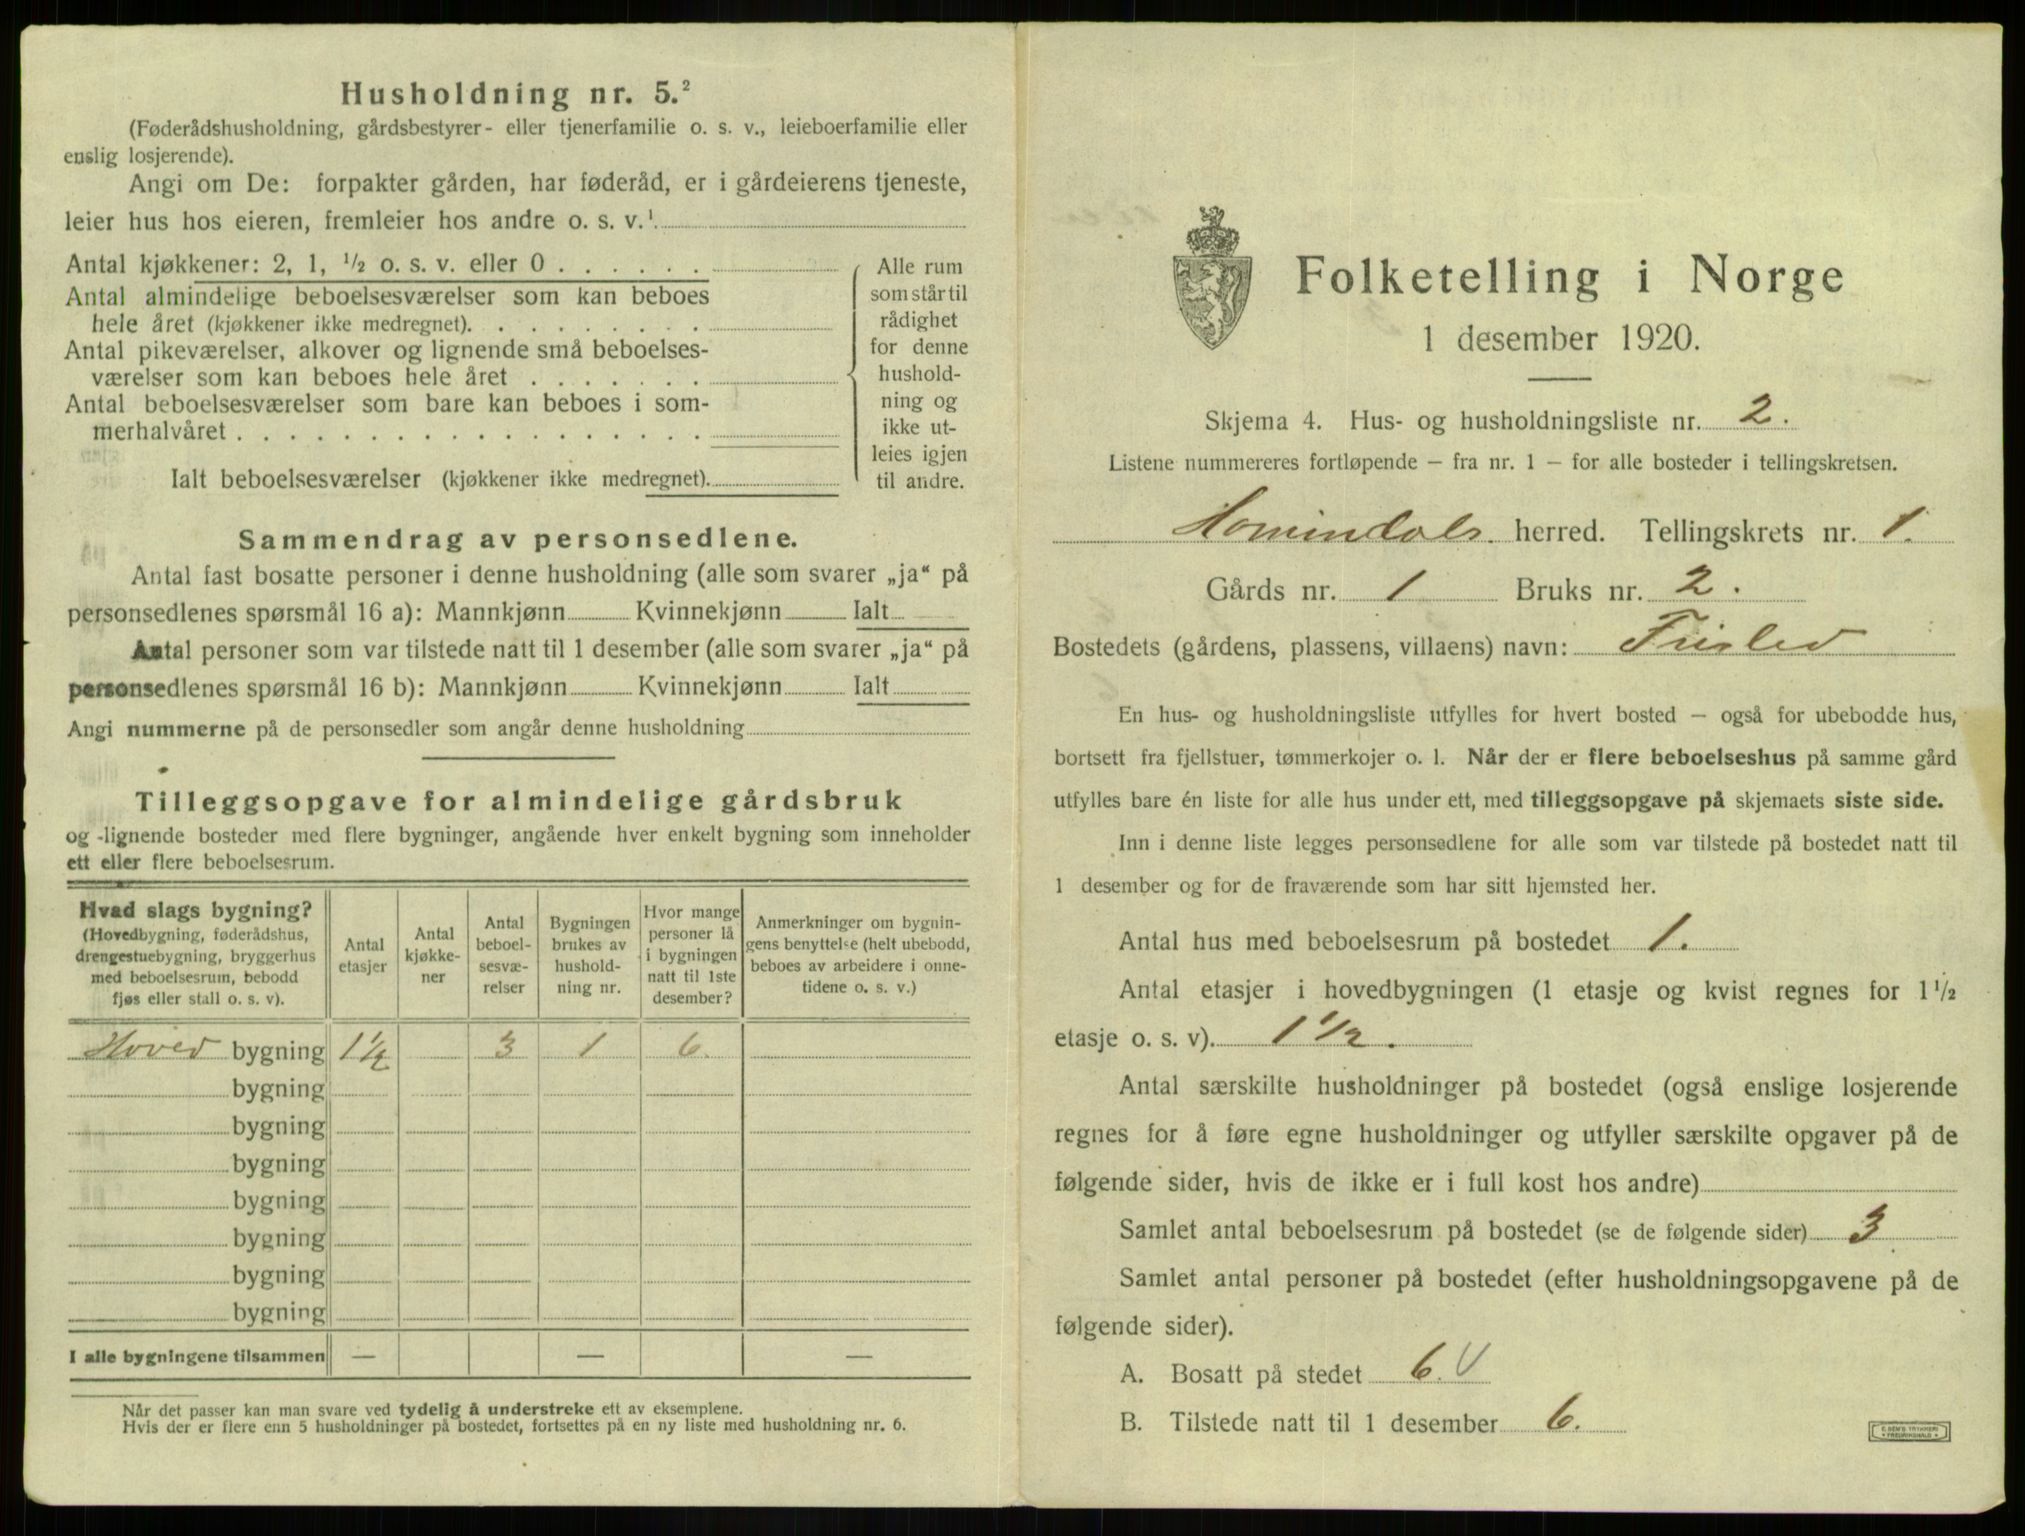 Husholdning nr. 5.²
(Føderådshusholdning, gårdsbestyrer- eller tjenerfamilie o. s. v., leieboerfamilie eller
enslig losjerende).
Angi om De: forpakter gården, har føderåd, er i gårdeierens tjeneste,
leier hus hos eieren, fremleier hos andre o. s. v.¹
Antal kjøkkener: 2, 1, ½ o. s. v. eller 0 . . . . . .
Antal almindelige beboelsesværelser som kan beboes
hele året (kjøkkener ikke medregnet). . . . . . . . .
Antal pikeværelser, alkover og lignende små beboelses-
værelser som kan beboes hele året . . . . . . .
Antal beboelsesværelser som bare kan beboes i som-
merhalvåret . . . . . . . . . . . . . . . . . .
Ialt beboelsesværelser (kjøkkener ikke medregnet).
Alle rum
som står til
rådighet
for denne
hushold-
ning og
ikke ut-
leies igjen
til andre.
Sammendrag av personsedlene.
Antal fast bosatte personer i denne husholdning (alle som svarer „ja“ på
personsedlenes spørsmål 16 a): Mannkjønn Kvinnekjønn Ialt
Antal personer som var tilstede natt til 1 desember (alle som svarer „ja“ på
personsedlenes spørsmål 16 b): Mannkjønn Kvinnekjønn Ialt
Angi nummerne på de personsedler som angår denne husholdning
Tilleggsopgave for almindelige gårdsbruk
og -lignende bosteder med flere bygninger, angående hver enkelt bygning som inneholder
ett eller flere beboelsesrum.
Hvad slags bygning?
(Hovedbygning, føderådshus,
drengestuebygning, bryggerhus
med beboelsesrum, bebodd
fjøs eller stall o. s. v).
Antal
etasjer
Antal
kjøkke-
ner
Antal
beboel-
sesvæ-
relser
Bygningen
brukes av
hushold-
ning nr.
Hvor mange
personer lå
i bygningen
natt til 1ste
desember?
Anmerkninger om bygnin-
gens benyttelse (helt ubebodd,
beboes av arbeidere i onne-
tidene o. s. v.)
Hoved bygning 1½ 3 1 6.
bygning
bygning
bygning
bygning
bygning
bygning
bygning
I alle bygningene tilsammen — — —
Når det passer kan man svare ved tydelig å understreke ett av eksemplene.
Hvis der er flere enn 5 husholdninger på bostedet, fortsettes på en ny liste med husholdning nr. 6.
Folketelling i Norge
1 desember 1920.
Skjema 4. Hus- og husholdningsliste nr. 2.
Listene nummereres fortløpende — fra nr. 1 — for alle bosteder i tellingskretsen.
Hornindals herred. Tellingskrets nr. 1.
Gårds nr. 1 Bruks nr. 2.
Bostedets (gårdens, plassens, villaens) navn:
En hus- og husholdningsliste utfylles for hvert bosted — også for ubebodde hus,
bortsett fra fjellstuer, tømmerkojer o. l. Når der er flere beboelseshus på samme gård
utfylles bare én liste for alle hus under ett, med tilleggsopgave på skjemaets siste side.
Inn i denne liste legges personsedlene for alle som var tilstede på bostedet natt til
1 desember og for de fraværende som har sitt hjemsted her.
Antal hus med beboelsesrum på bostedet 1.
Antal etasjer i hovedbygningen (1 etasje og kvist regnes for 1½
etasje o. s. v). 1½.
Antal særskilte husholdninger på bostedet (også enslige losjerende
regnes for å føre egne husholdninger og utfyller særskilte opgaver på de
følgende sider, hvis de ikke er i full kost hos andre)
Samlet antal beboelsesrum på bostedet (se de følgende sider) 3
Samlet antal personer på bostedet (efter husholdningsopgavene på de
følgende sider).
A. Bosatt på stedet 6. V
B. Tilstede natt til 1 desember 6.